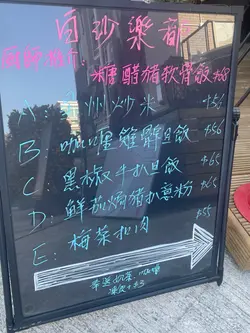 白沙樂部
廚師推介：
糖醋豬軟骨飯 $68
A：州炒米 $56
B：咖喱雞髀旦飯 $56
C：黑椒牛扒旦飯 $65
D：鮮茄焗豬扒意粉 $65
E：梅菜扣肉 $55
奉送奶茶 咖啡
凍飲+$3